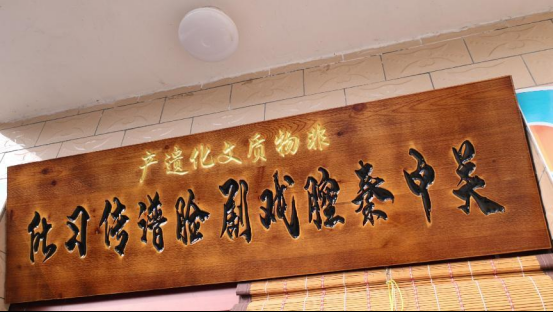 非物质文化遗产
吴中秦腔戏剧脸谱传习所